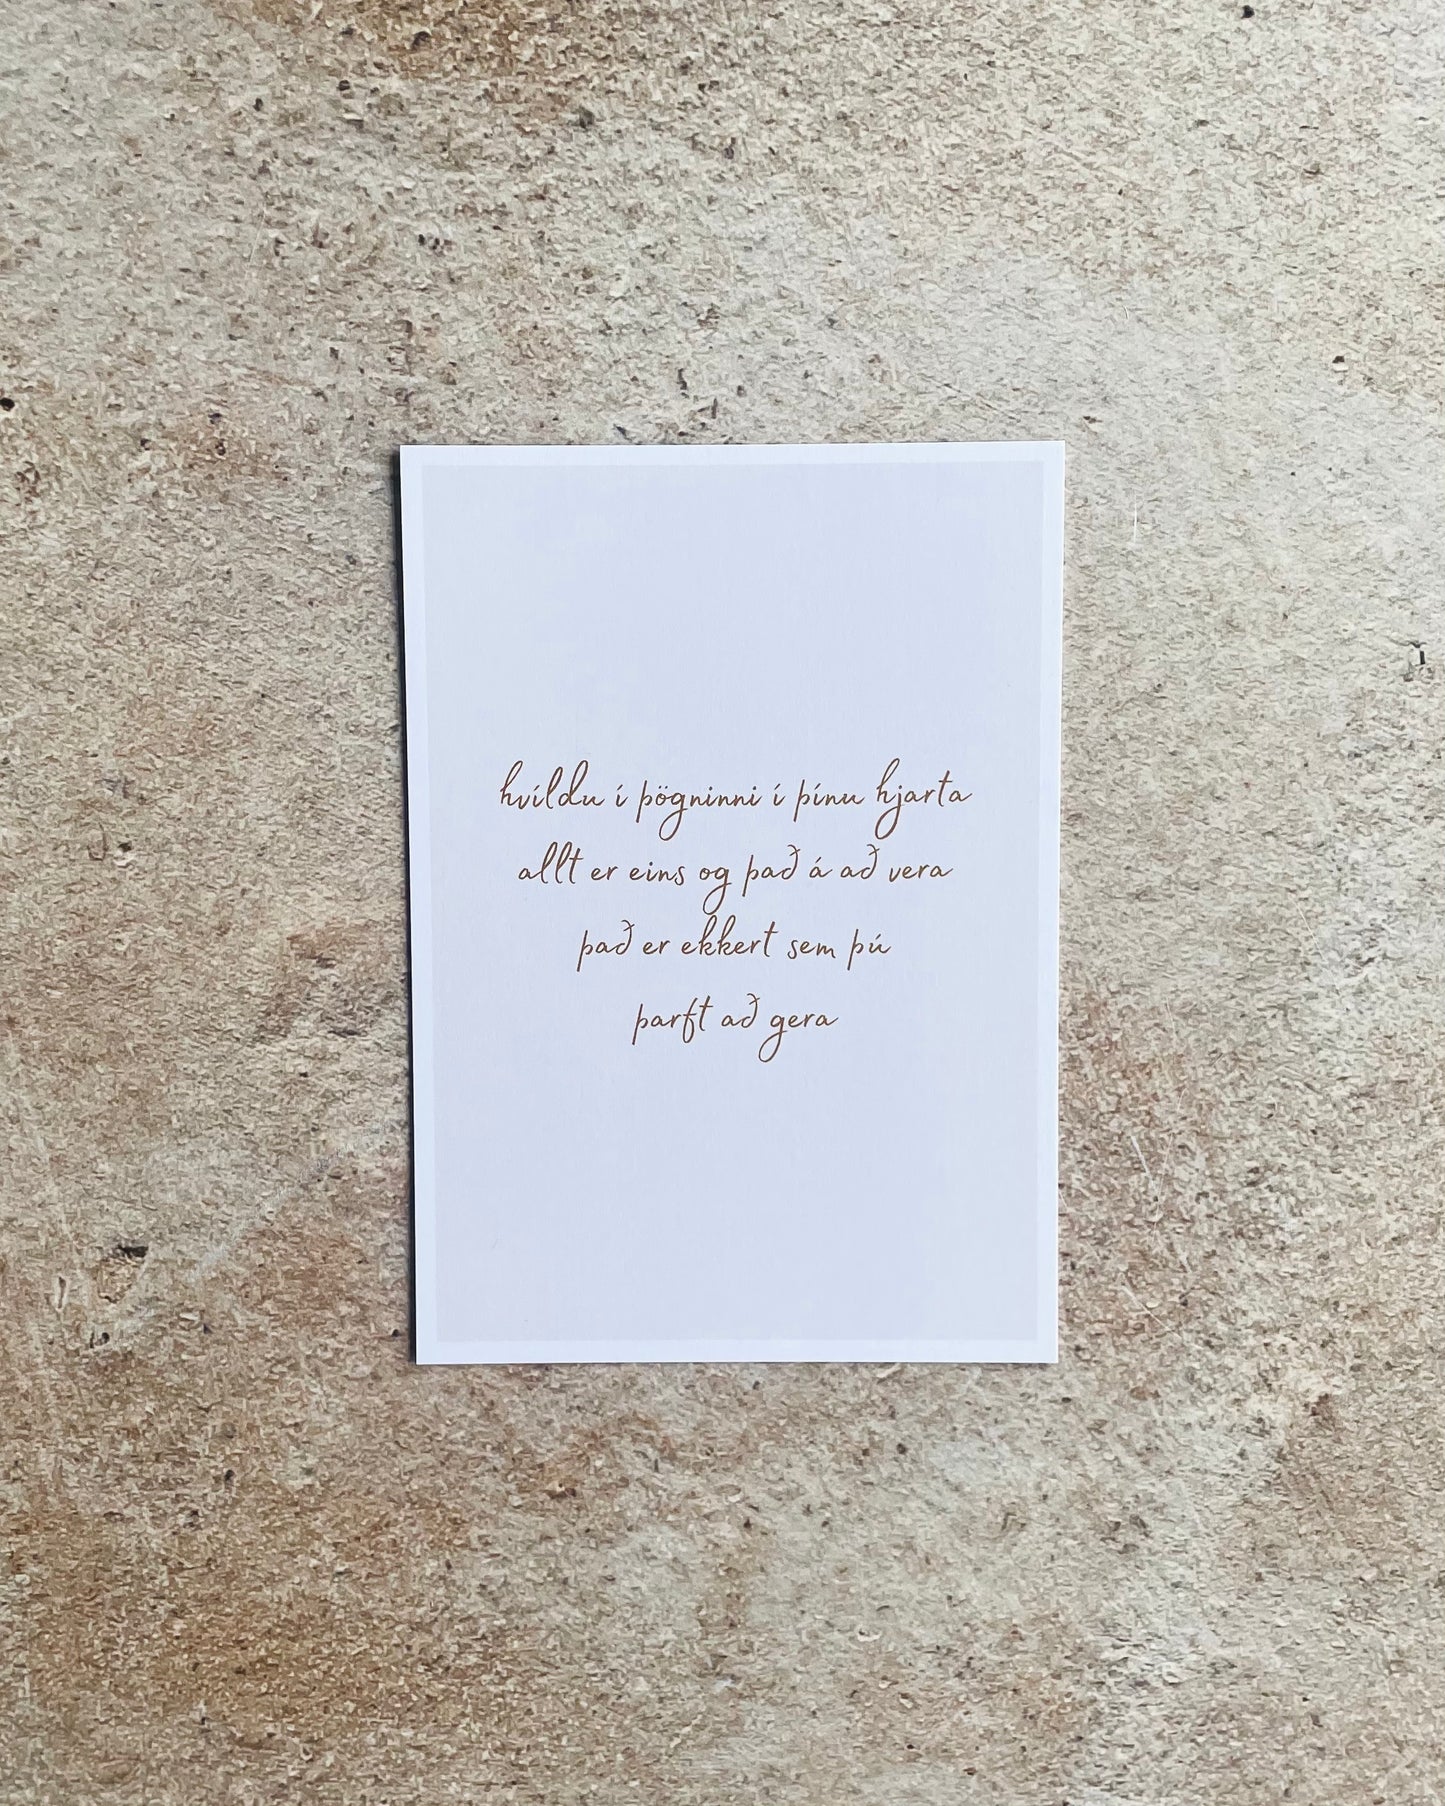 hvíldu í þögninni í þínu hjarta
allt er eins og það á að vera
það er ekkert sem þú
þarft að gera